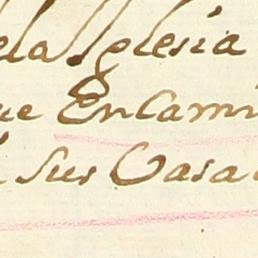 dela Iglesia
que Encami
á sus Casa